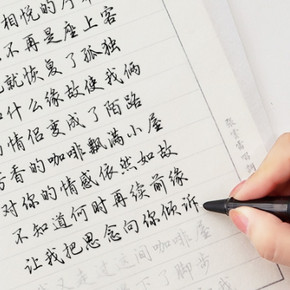 相悦的
不再是座上客
就恢复了孤独
什么缘故使我俩
情侣变成了陌路
香的咖啡飘满小屋
对你的情感依然如故
不知道何时再续前缘
让我把思念向你倾诉
又是走进这间咖啡屋
下了脚步